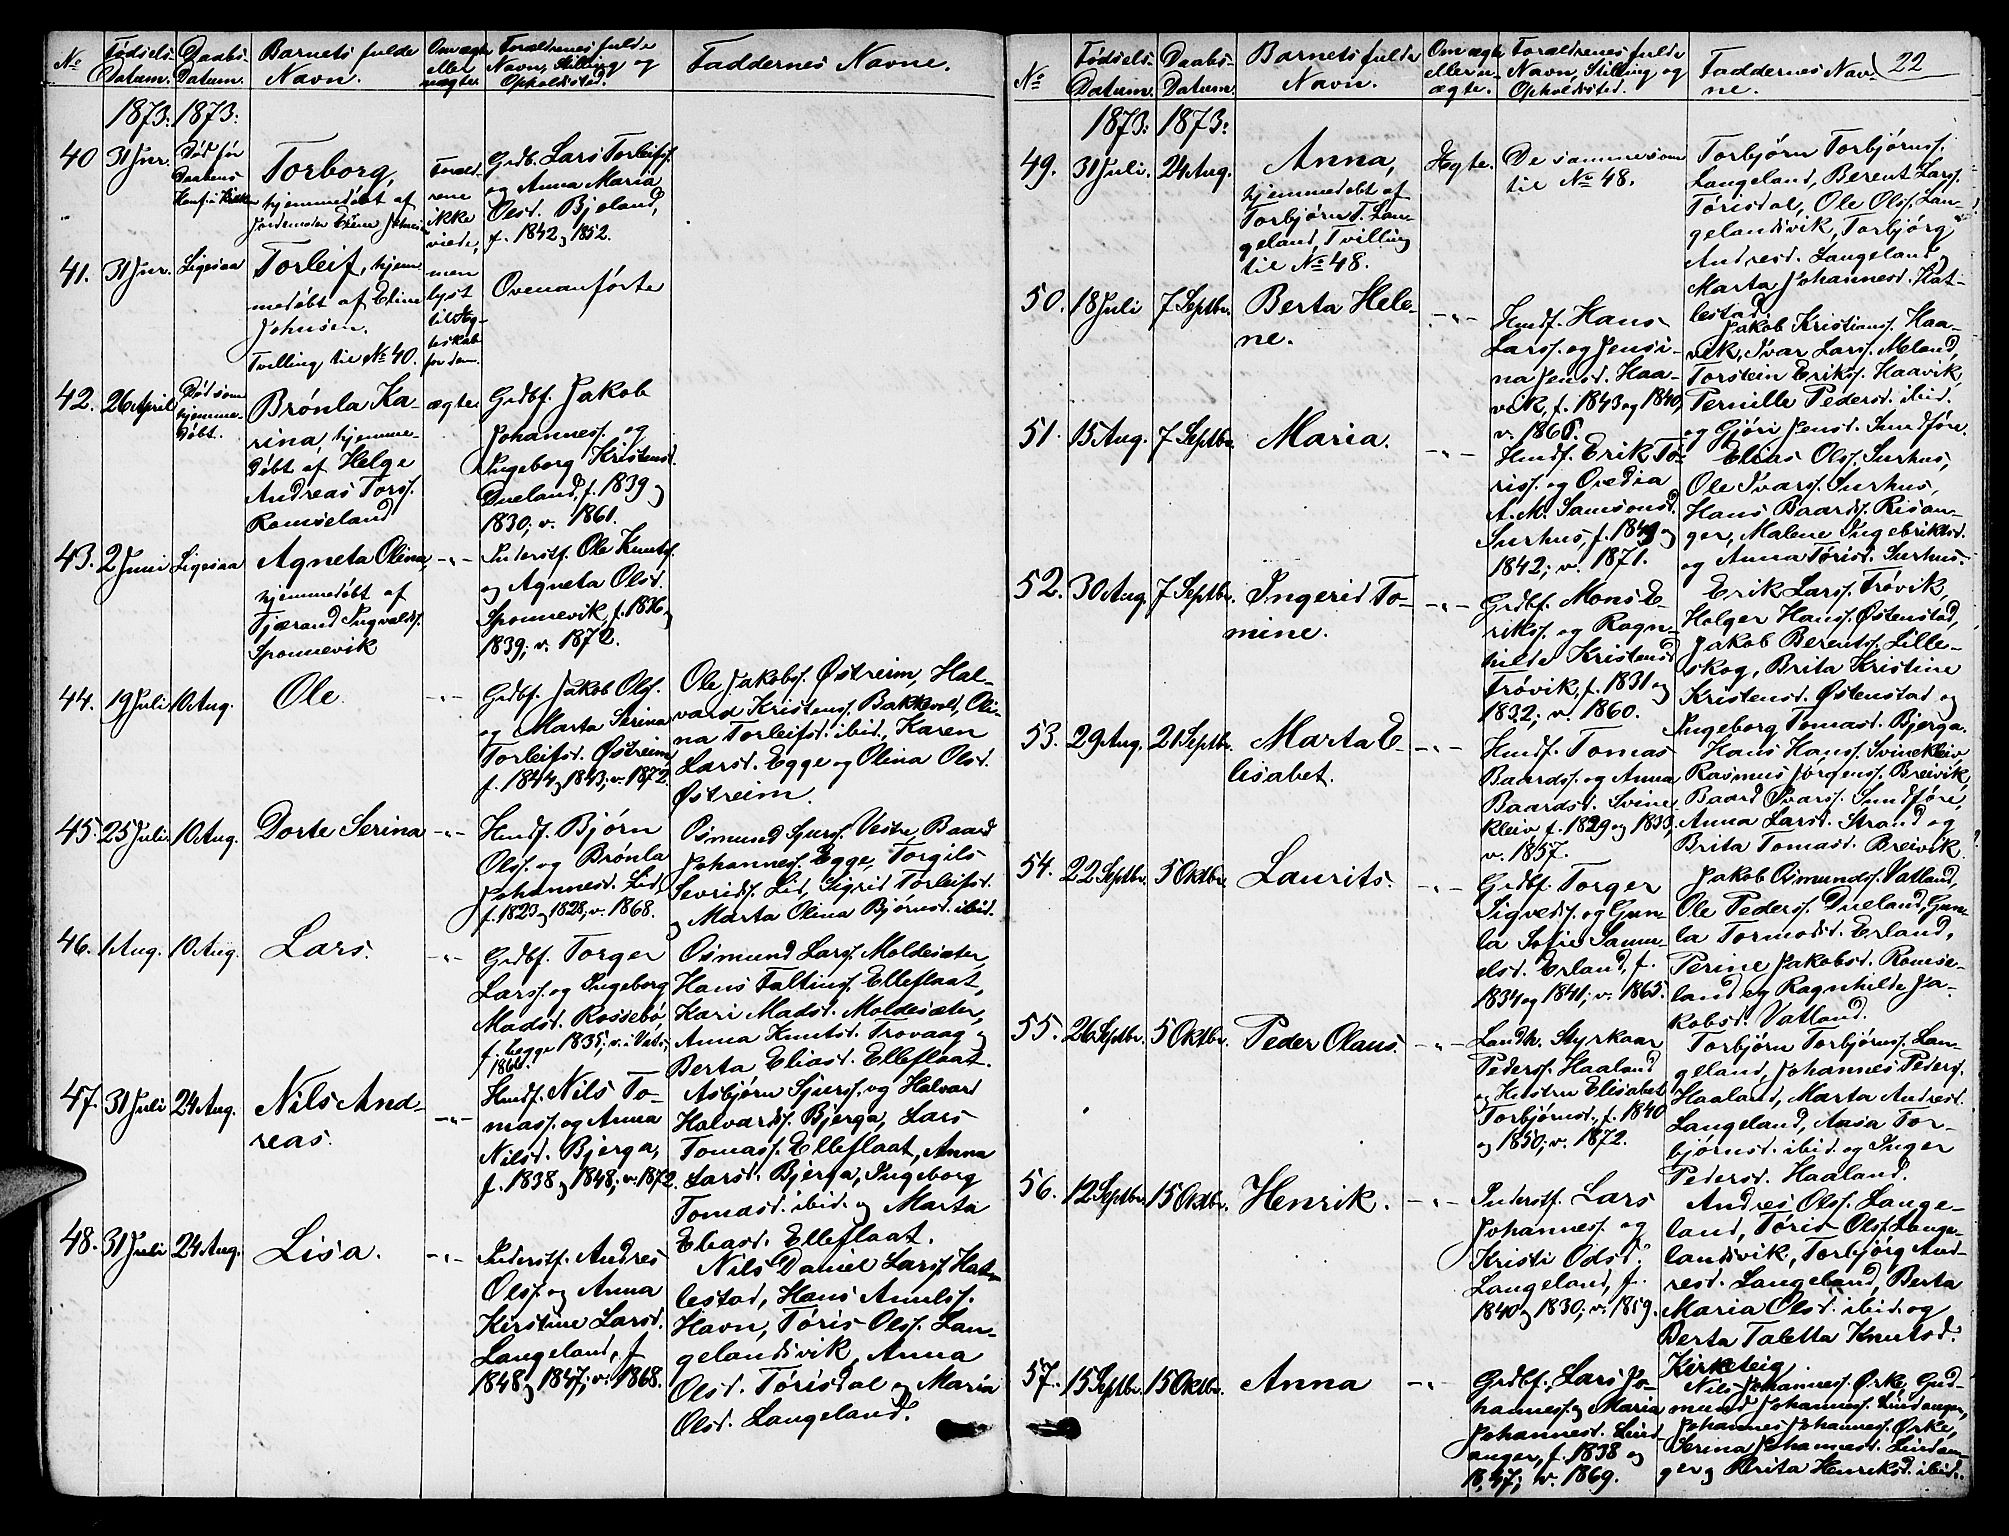 No
Fødsels-
Datum.
Daabs-
Datum.
Barnets fulde
Navn.
Om ægte
eller
uægte.
Forældrenes fulde
Navn, Stilling og
Opholdssted.
Faddernes Navne.
1873: 1873:
40
31 Jnr.
Død før
Daabens
Torborg,
hjemmedøbt af
Foræld-
rene
ikke
viede,
Grdb. Lars Torleifs.
og Anna Maria
Olsd. Bjeland,
f. 1842 og 1852.
41.
31 Jnr.
Ligesaa
Torleif, hjem-
medøbt af Eline
Johnsen.
Tvilling til No 40.
men
lyst
til Æg-
teskab
for dem.
Ovenanførte
42.
26 April
Død som
hjemme-
døbt.
Brønla Ka-
rina, hjemme-
døbt af Helge
Andreas Torss.
Romseland
ægte.
Grdbf. Jakob
Johanness. og
Ingeborg Kristensd.
Dueland, f. 1839 og
1830, v. 1861.
43.
2 Juni
Ligesaa
Agneta Olina,
hjemmedøbt af
Fjærand Ingvalds.
Sponnevik
-"-
Inderstf. Ole Knuts.
og Agneta Olsd.
Sponnevik, f. 1836 og
1839; v. 1872.
44.
19 Juli
10 Aug.
Ole.
-"-
Grdbf. Jakob Ols.
og Marta Serina
Torleifsd. Østreim,
f. 1844 og 1843; v. 1872.
Ole Jakobs. Østreim, Hal-
vard Kristens. Bakkevold, Oli-
na Torleifsd. ibid., Karen
Larsd. Egge og Olina Olsd.
Østreim.
45.
25 Juli.
10 Aug.
Dorte Serina
-"-
Hmdf. Bjørn
Ols. og Brønla
Johannesd. Lid,
f. 1823 og 1828, v. 1868.
Osmund Sjurs. Vestre, Baard
Johanness. Egge, Torgils
Sevrids. Lid, Sigrid Torleifsd.
og Marta Olina Bjørnsd. ibid.
46.
1 Aug.
10 Aug.
Lars.
-"-
Grdbf. Torger
Larss. og Ingeborg
Madsd. Rossebø,
f. begge 1835; v. i Vats,
1860.
Osmund Larss. Moldesæter,
Hans Faltins. Elleflaat,
Kari Madsd. Moldesæter,
Anna Knutsd. Trovaag og
Berta Eliasd. Elleflaat.
47.
31 Juli
24 Aug.
Nils And-
reas.
-"-
Hmdf. Nils To-
mass. og Anna
Nilsd. Bjerga,
f. 1838 og 1848; v. 1872.
Asbjørn Sjurss. og Halvard
Halvards. Bjerga, Lars
Tomass. Elleflaat, Anna
Larsd. Bjerga, Ingeborg
Tomasd. ibid. og Marta
Eliasd. Elleflaat.
48.
31 Juli
24 Aug.
Lisa.
-"-
Inderstf. Andres
Ols. og Anna
Kirstine Larsd.
Langeland, f.
1848 og 1847; v. 1868.
Nils Daniel Larss. Hat-
lestad, Hans Amuls.
Havn, Tøris Ols. Lan-
gelandsvik, Anna
Olsd. Tørisdal og Maria
Olsd. Langeland.
22
No
Fødsels-
Datum.
Daabs-
Datum.
Barnets fulde
Navn.
Om ægte
eller u-
ægte.
Forældrenes fulde
Navn, Stilling og
Opholdssted.
Faddernes Nav-
ne.
1873: 1873:
49.
31 Juli.
24 Aug.
Anna,
hjemmedøbt af
Torbjørn T. Lan-
geland, Tvilling
til No 48.
Ægte.
De samme som
til No 48.
Torbjørn Torbjørns.
Langeland, Berent Larss.
Tørisdal, Ole Ols. Lan-
gelandsvik, Torbjørg
Andresd. Langeland,
Marta Johannesd. Hat-
lestad.
50.
18 Juli
7 Septbr.
Berta Hele-
ne.
-"-
Hmdf. Hans
Larss. og Jensi-
na Jensd. Haa-
vik, f. 1843 og 1840,
v. 1866.
Jakob Kristians. Haa-
vik, Ivar Larss. Meland,
Torstein Eriks. Haavik,
Pernille Pedersd. ibid.
og Gjøri Jensd. Sundføre.
51.
15 Aug.
7 Septbr.
Maria.
-"-
Hmdf. Erik Tø-
riss. og Ovedia
A. M. Samsonsd.
Surhus, f. 1849 og
1842; v. 1871.
Elias Ols. Surhus,
Ole Ivars. Surhus,
Hans Baards. Risan-
ger, Malene Ingebriktsd.
og Anna Tørisd. Surhus.
52.
30 Aug.
7 Septbr.
Ingerid To-
mine.
-"-
Grdbf. Mons E-
riks. og Ragn-
hilde Kristensd.
Trøvik, f. 1831 og
1832; v. 1860.
Erik Larss. Trøvik,
Holger Hanss. Østenstad,
Jakob Berents. Lille-
skog, Brita Kristine
Kristensd. Østenstad og
Ingeborg Tomasd. Bjerga.
53.
29 Aug.
21 Septbr.
Marta E-
lisabet.
-"-
Hmdf. Tomas
Baards. og Anna
Baardsd. Svine-
kleiv f. 1829 og 1833,
v. 1857.
Hans Hanss. Svinekleiv,
Rasmus Jørgens. Breivik,
Baard Ivars. Sundføre,
Anna Larsd. Strand og
Brita Tomasd. Breivik.
54.
22 Septbr.
5 Oktbr.
Laurits.
-"-
Grdbf. Torger
Sigveds. og Gun-
la Sofie Samu-
elsd. Erland, f.
1834 og 1841; v. 1865.
Jakob Osmunds. Vatland,
Ole Peders. Dueland, Gun-
la Tormodsd. Erland,
Perine Jakobsd. Romse-
land og Ragnhilde Ja-
kobsd. Vatland.
55.
26 Septbr.
5 Oktbr.
Peder Olaus.
-"-
Landh. Styrkaar
Peders. Haaland
og Hustru Elisabet
Torbjørnsd., f. 1840
og 1850; v. 1872.
Torbjørn Torbjørns. Lan-
geland, Johannes Peders.
Haaland, Marta Andresd.
Langeland, Aasa Tor-
bjørnsd. ibid. og Inger
Pedersd. Haaland.
56.
12 Septbr.
15 Oktbr.
Henrik.
-"-
Inderstf. Lars
Johanness. og
Kristi Odsd.
Langeland, f.
1840 og 1830; v. 1859.
Andres Ols. Lange-
land, Tøris Ols. Lange-
landsvik, Torbjørg And-
resd. Langeland, Berta
Maria Olsd. ibid. og
Berta Taletta Knutsd.
Kirketeig.
57.
15 Septbr.
15 Oktbr.
Anna
-"-
Grdbf. Lars Jo-
hanness. og Maria
Johannesd. Lind-
anger, f. 1838 og
1847; v. 1869.
Nils Johanness. Ørke, Gud-
mund Johanness. Lindanger,
Johannes Johanness. Ørke,
Serina Johannesd. Lindan-
ger og Brita Henriksd. ibid.